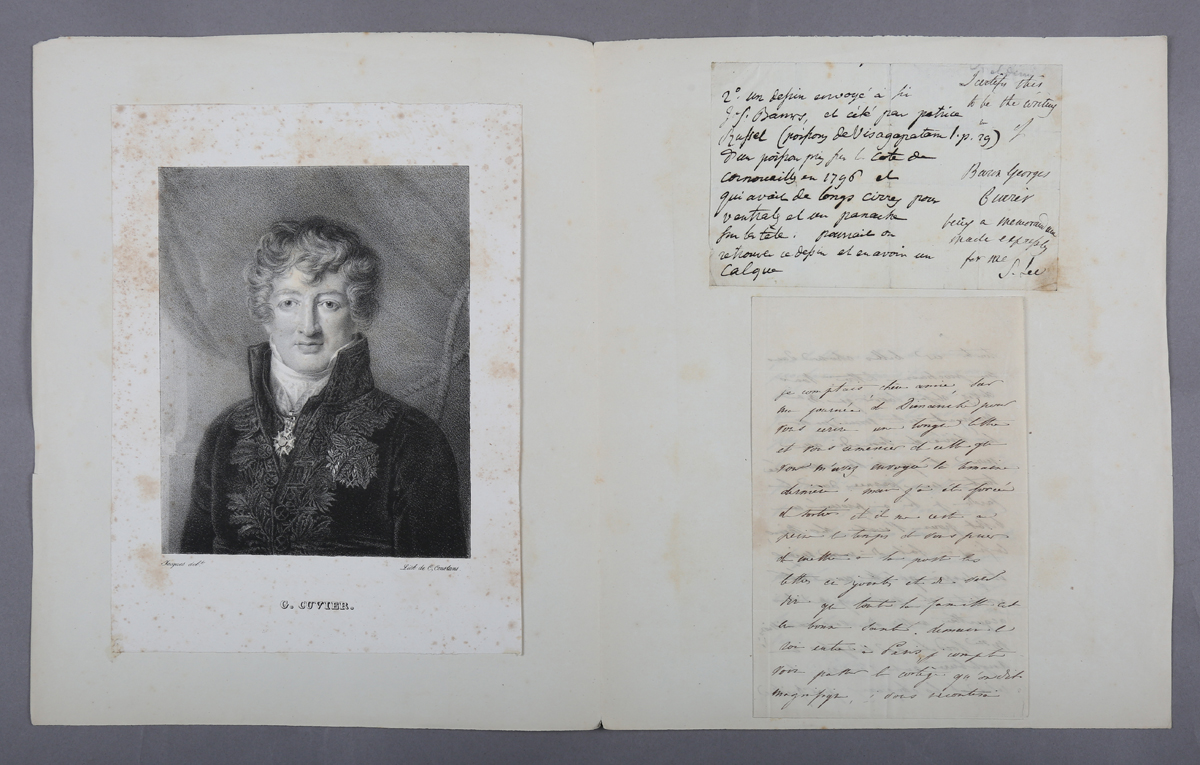 Jacques del.t
Lith. de C. Constans
G. CUVIER.
2° un dessin envoyé a Sir
J. S. Banks, et cité par patrice
Russel (poissons de Visagapatam 1. p. 29)
D'un poisson pris sur la cote de
cornouailles en 1796 et
qui avait de longs cirres pour
ventrales et un panache
sur la tête. pourrait on
retrouver ce dessin et en avoir un
Calque
I certify this
to be the writing
of
Baron Georges
Cuvier
being a memorandum
made expressly
for me
S. Lee
je comptais chere amie, sur
ma journée d Dimanche pour
vous ecrire une longue lettre
et vous remercier d celle que
vous m'avez envoyée la semaine
derniere, mais j'ai eté forcée
d sortir, et il ne me reste
le temps d vous prier
d mettre a la poste les
lettres ci jointes et de vous
dire que toute la famille est
en bonne santé. demain le
roi entre à Paris, j compte
voir passer le cortège qu'on dit
magnifique,